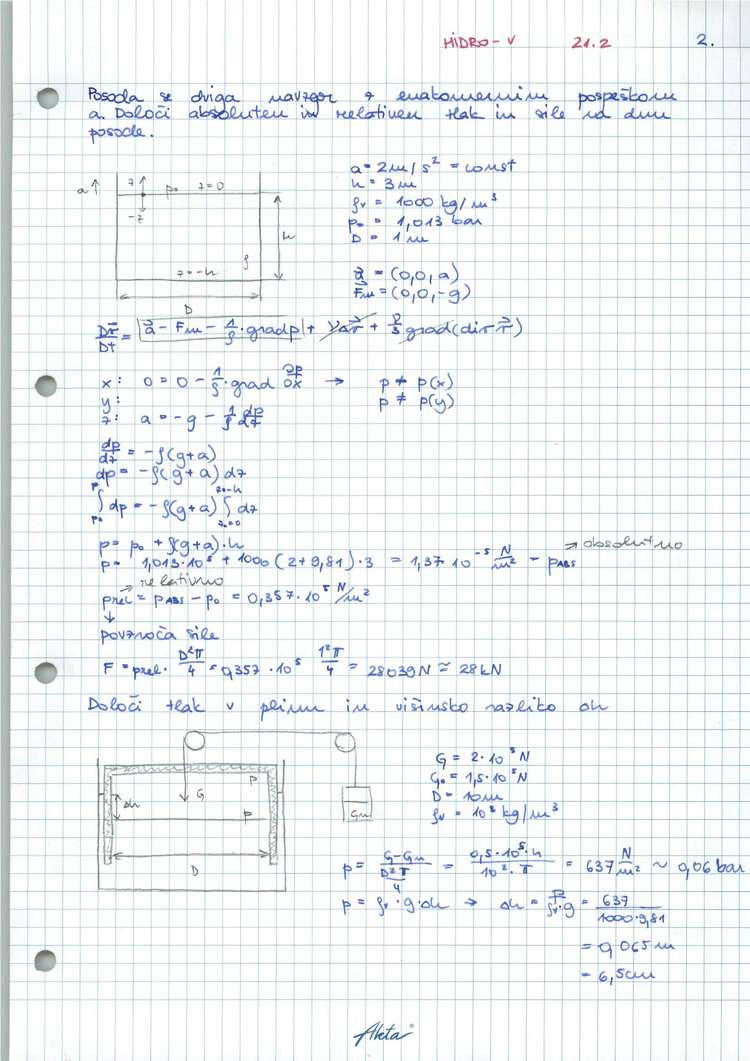 HIDRO-V 21.2 2.
Posoda se dviga navzgor z enakomernim pospeškom
a. Določi absoluten in relativen tlak in sile na dnu
posode.
a↑ z↑ p₀ z=0
-z
h
ρ
z=-h
D
a = 2 m/s² = const
h = 3 m
ρv = 1000 kg/m³
p₀ = 1,013 bar
D = 1 m
a⃗ = (0,0,a)
F⃗m = (0,0,-g)
Dv⃗/Dt = a⃗ - Fm - 1/ρ · grad p + νΔv⃗ + ν/3 grad(div v⃗)
x: 0 = 0 - 1/ρ · grad ∂p/∂x → p ≠ p(x)
y: p ≠ p(y)
z: a = -g - 1/ρ dp/dz
dp/dz = -ρ(g+a)
dp = -ρ(g+a) dz
∫ₚ₀ᵖ dp = -ρ(g+a) ∫ dz z₀=0 z=-h
p = p₀ + ρ(g+a)·h
p = 1,013·10⁵ + 1000(2+9,81)·3 = 1,37·10⁻⁵ N/m² - pABS → absolutno
→ relativno
prel = pABS - p₀ = 0,357·10⁵ N/m²
↓
povzroča sile
F = prel · D²π/4 = 0,357·10⁵ 1²π/4 = 28039 N ≈ 28 kN
Določi tlak v plinu in višinsko razliko Δh
p
G
Δh
p
D
Gu
G = 2·10⁵ N
G₀ = 1,5·10⁵ N
D = 10 m
ρv = 10³ kg/m³
p = (G-Gu)/(D²π/4) = (0,5·10⁵·4)/(10²·π) = 637 N/m² ~ 0,06 bar
p = ρv·g·Δh → Δh = p/(ρv·g) = 637/(1000·9,81)
= 0,065 m
= 6,5 cm
Akta